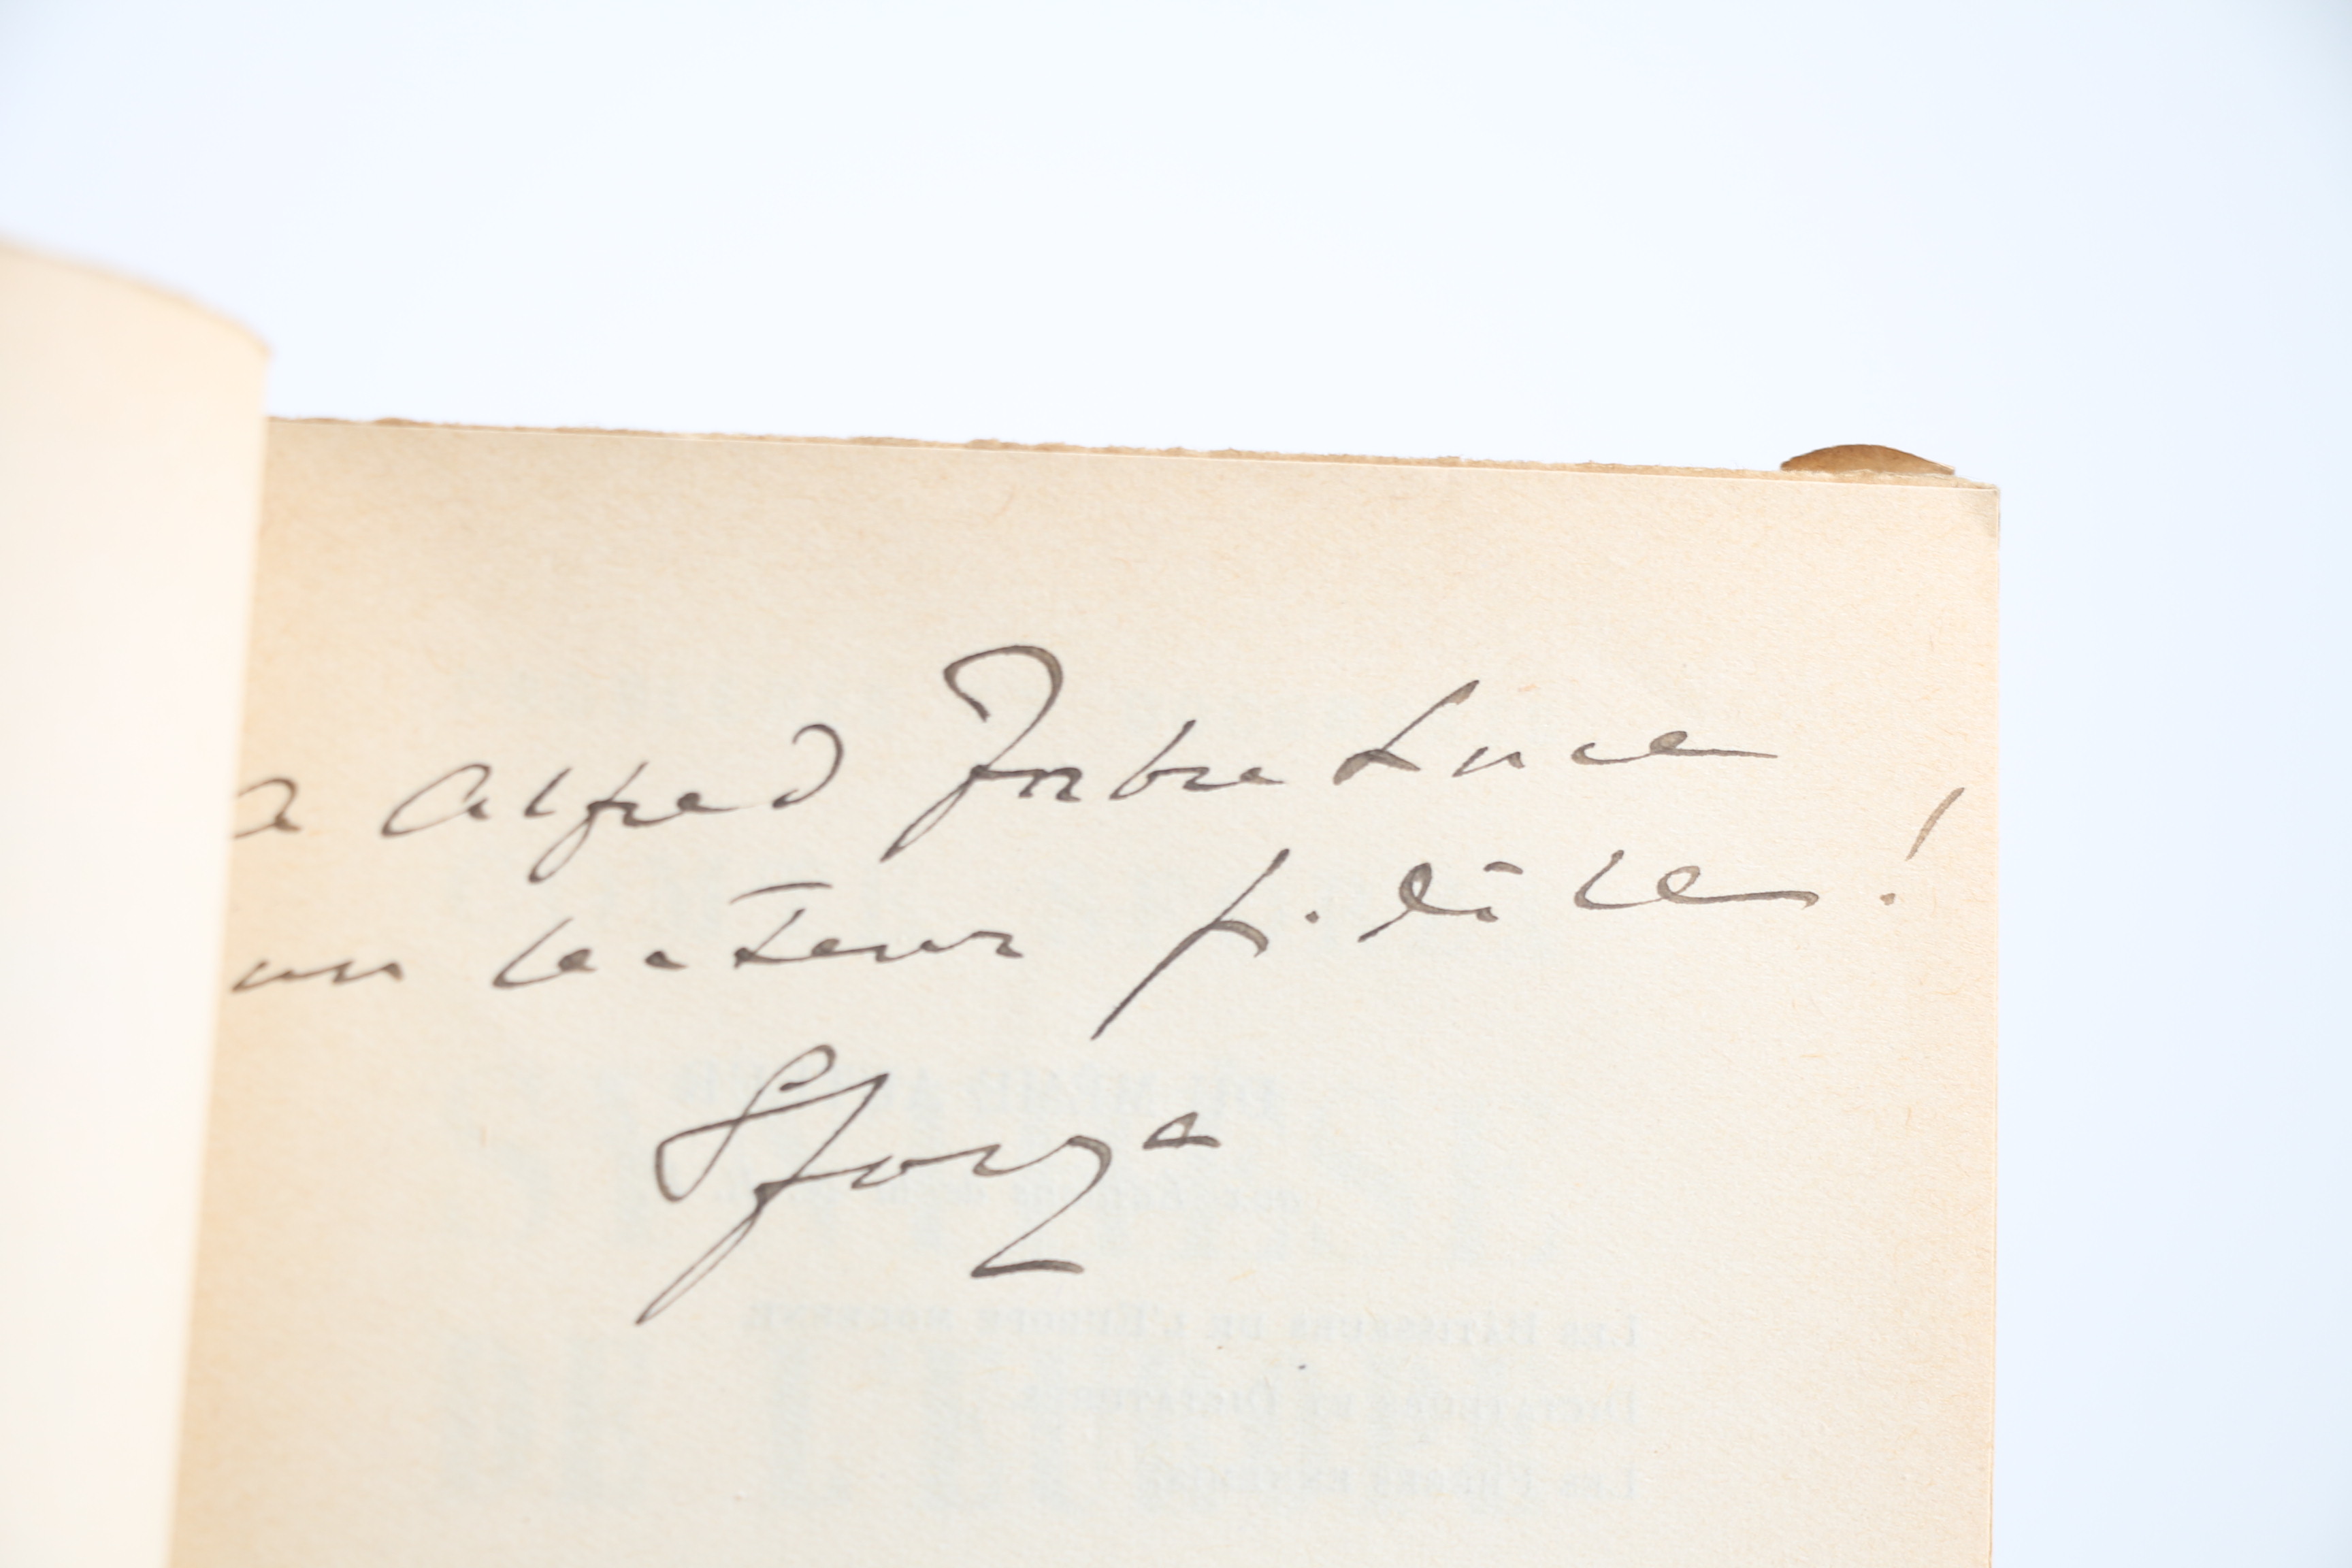 a Alfred Fabre Luce
un lecteur fidèle !
Sforza